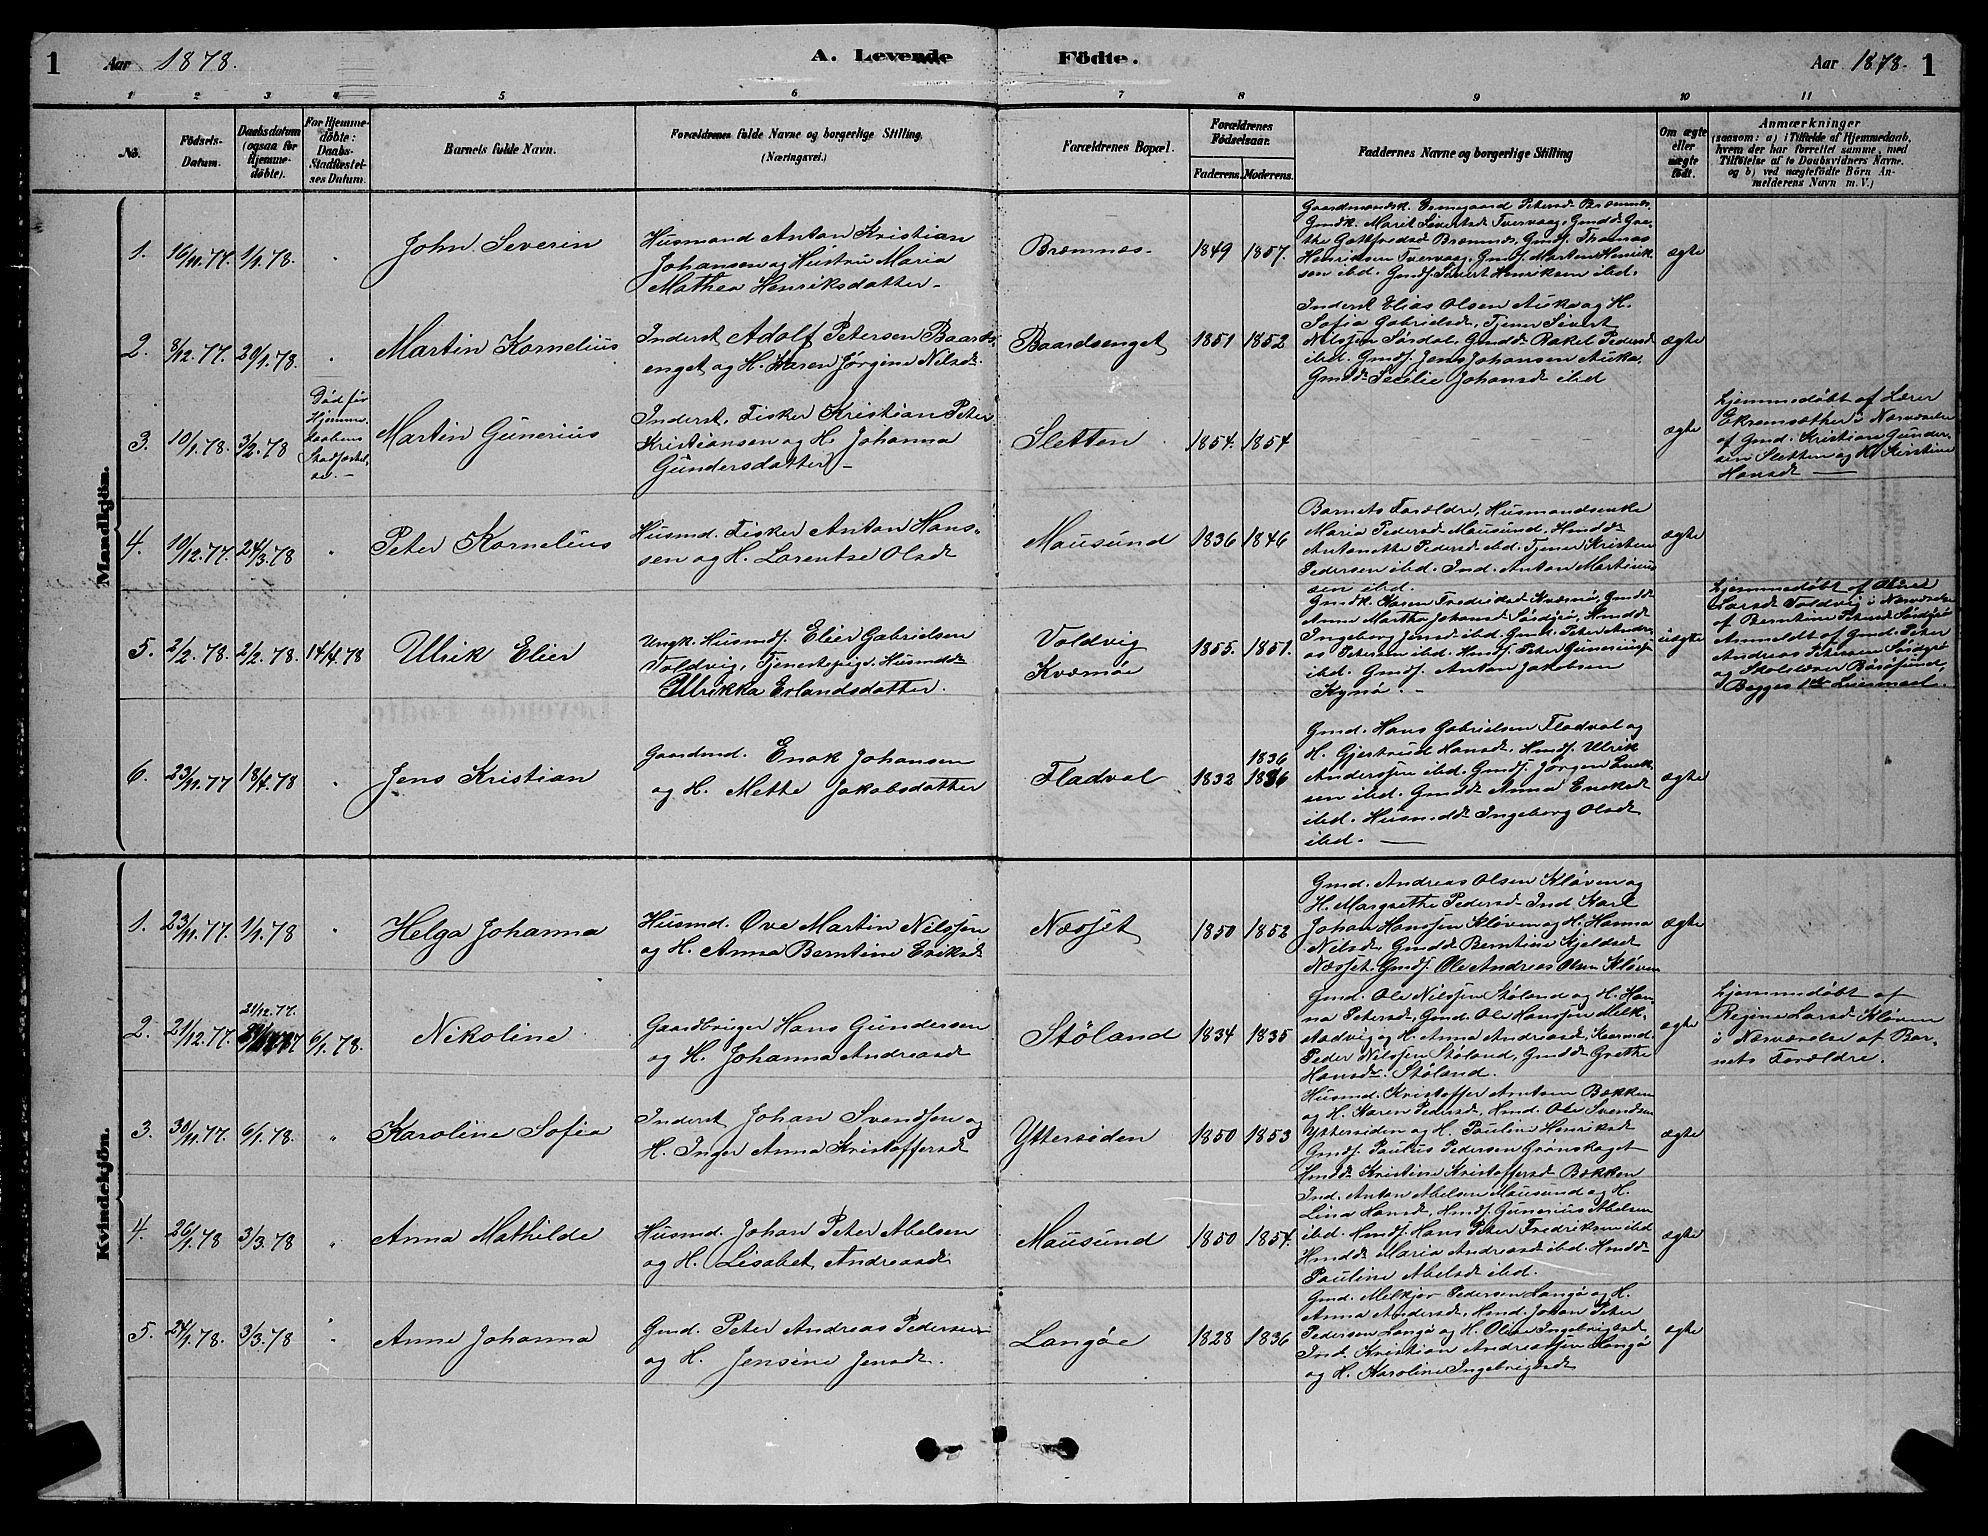 1
Aar 1878.
A. Levende
Födte.
Aar 1878.
1
1 2 3 4 5 6 7 8 9 10 11
No.
Födsels-
Datum.
Daabsdatum
(ogsaa for
Hjemme-
döbte).
For Hjemme-
döbte:
Daabs-
Stadfæstel-
ses Datum.
Barnets fulde Navn.
Forældrenes fulde Navne og borgerlige Stilling.
(Næringsvei.)
Forældrenes Bopæl.
Forældrenes
Födselsaar.
Faderens.
Moderens.
Faddernes Navne og borgerlige Stilling
Om ægte
eller
uægte
födt.
Anmærkninger
(saasom: a) i Tilfælde af Hjemmedaab,
hvem der har forrettet samme, med
Tilföielse af to Daabsvidners Navne.
og b) ved uægtefödte Börn An-
melderens Navn m. V.)
Mandkjön.
1.
16/11.77.
1/1.78.
"
John Severin
Husmand Anton Kristian
Johansen og Hustru Maria
Mathea Henriksdatter
Bræmnæs
1849
1857.
Gaardmandsk. Petersd Bræmnes.
Gmdk. Marit Sivertsd Tvervaag, Gmdd Gre-
the Gottfredsd Bræmnes, Gmdf. Thomas
Henriksen Tvervaag, Gmdf Morten Henrik-
sen ibd. Gmdf. Sivert Henriksen ibd.
ægte
2.
8/12.77.
20/1.78.
"
Martin Kornelius
Inderst Adolf Petersen Baards-
enget og H. Karen Jørgine Nilsd.
Baardsenget
1851
1852
Inderst Elias Olsen Auka og H.
Sofia Gabrielsd, Tjener Sivert
Nilssen Sørdal, Gmdd Rakel Pedersd
ibd. Gmdf. Jens Johansen Auka.
Gmdd Secilie Johansd ibd
ægte
3.
10/1.78.
3/2.78
Død før
Hjemme-
daabens
Stadfæstel-
se.
Martin Gunerius
Inderst, Fisker Kristian Peter
Kristiansen og H. Johanna
Gundersdatter
Sletten
1854.
1854
ægte
Hjemmedøbt af Lærer
Ekremsæther i Nærværelse
af Gmd. Kristian Gunder-
sen Sletten og K. Kerstine
Hansd
4.
10/12.77.
24/3.78
"
Peter Kornelius
Husmd. Fisker Anton Hans-
sen og H. Lorentse Olsd
Mausund
1836
1846
Barnets Forældre, Husmandsenke
Maria Pedersd Mausund. Hmdd
Antonette Pedersd ibd. Tjener Kristen
Pedersen ibd. Ind. Anton Martinus-
sen ibd.
ægte
5.
2/2.78.
2/2.78.
14/4.78
Ulrik Elier
Ungk. Husmdf. Elier Gabrielsen
Voldvig, Tjenestepige, Husmdd
Ulrikka Erlandsdatter.
Voldvig
Kværnøe
1855.
1851.
Gmdk. Karen Fredriksd Kværnø, Gmdd
Anna Martha Johansd Sørdyrø, Hmdd
Ingeborg Jensd ibd. Gmd. Peter Andre-
as Petersen ibd. Hmdf. Peter Gunerius
ibd. Gmdf. Anton Jakobsen
Kyrnø.
uægte
Hjemmedøbt af
Larsd Voldvig i Nærværelse
af Berntine Petersd Sørdyrø
Anmeldt af Gmd. Peter
Andreas Petersen Sørdyrø
og Skolelærer
Begges 1ste Leiermaal.
6.
23/11.77
18/4.78
"
Jens Kristian
Gaardmd. Enok Johansen
og H. Mette Jakobsdatter
Fladval
1832
1836
1836
Gmd. Hans Gabrielsen Fladval og
H. Gjertrud Hansd. Hmdf. Ulrik
Anderssen ibd. Gmdf. Jørgen Enok-
sen ibd. Gmdd Anna Enoksd
ibd. Husmdd Ingeborg Olsd
ibd.
ægte
Kvindekjön.
1.
23/11.77.
1/1.78
"
Helga Johanna
Husmd. Ove Martin Nilssen
og H. Anna Berntine Eriksd
Næsset
1850
1852
Gmd. Andreas Olsen Kløven og
H. Margrethe Pedersd. Ind Karl
Johan Hanssen Kløven og H. Hanna
Nilsd, Gmdd Berntine Kjeldsd
Næsset. Gmdf. Ole Andreas Olsen Kløven
ægte
2.
21/12.77.
21/12.77.
6/1.78.
Nikoline
Gaardbruger Hans Gundersen
og H. Johanna Andreasd
Støland
1834
1835
Gmd. Ole Nilssen Støland og H. Han-
na Petersd, Gmd. Ole Hanssen Melk-
stadvig og H. Anna Andreasd,
Peder Nilssen Støland, Gmdd Grethe
Hansd. Støland.
ægte
Hjemmedøbt af
Regine Larsd Kløven
i Nærværelse af Bar-
nets Forældre.
3.
30/11.77.
6/1.78.
"
Karoline Sofia
Inderst Johan Svendsen og
H. Inger Anna Kristoffersd
Yttersiden
1850
1853
Husmd. Kristoffer Arntsen Bækken
og H. Karen Pedersd, Hmd. Ole Svendsen
Yttersiden og H. Pauline Henriksd
Gmdf. Paulus Pedersen Grønskaget
Hmdd Kristine Kristoffersd Bækken
ægte
4.
26/1.78
3/3.78
"
Anna Mathilde
Husmd. Johan Peter Abelsen
og H. Lisabet Andreasd
Mausund
1850
1854.
Ind. Anton Abelsen Mausund og H.
Lina Hansd, Hmdf. Gunerius Abelsen
ibd. Hmdf. Hans Peter Fredriksen ibd
Hmdd Maria Andreasd ibd. Hmdd
Pauline Abelsd ibd.
ægte
5.
24/1.78.
3/3.78
"
Anne Johanna
Gmd. Peter Andreas Pedersen
og H. Jensine Jensd.
Langøe
1828
1836
Gmd. Melkjor Pedersen Langø og H.
Anna Andersd, Hmd. Johan Peter
Pedersen Langø og H. Oline Ingebrigtsd
Ind. Kristian Andreassen Langø
og H. Karoline Ingebrigtsd
ægte